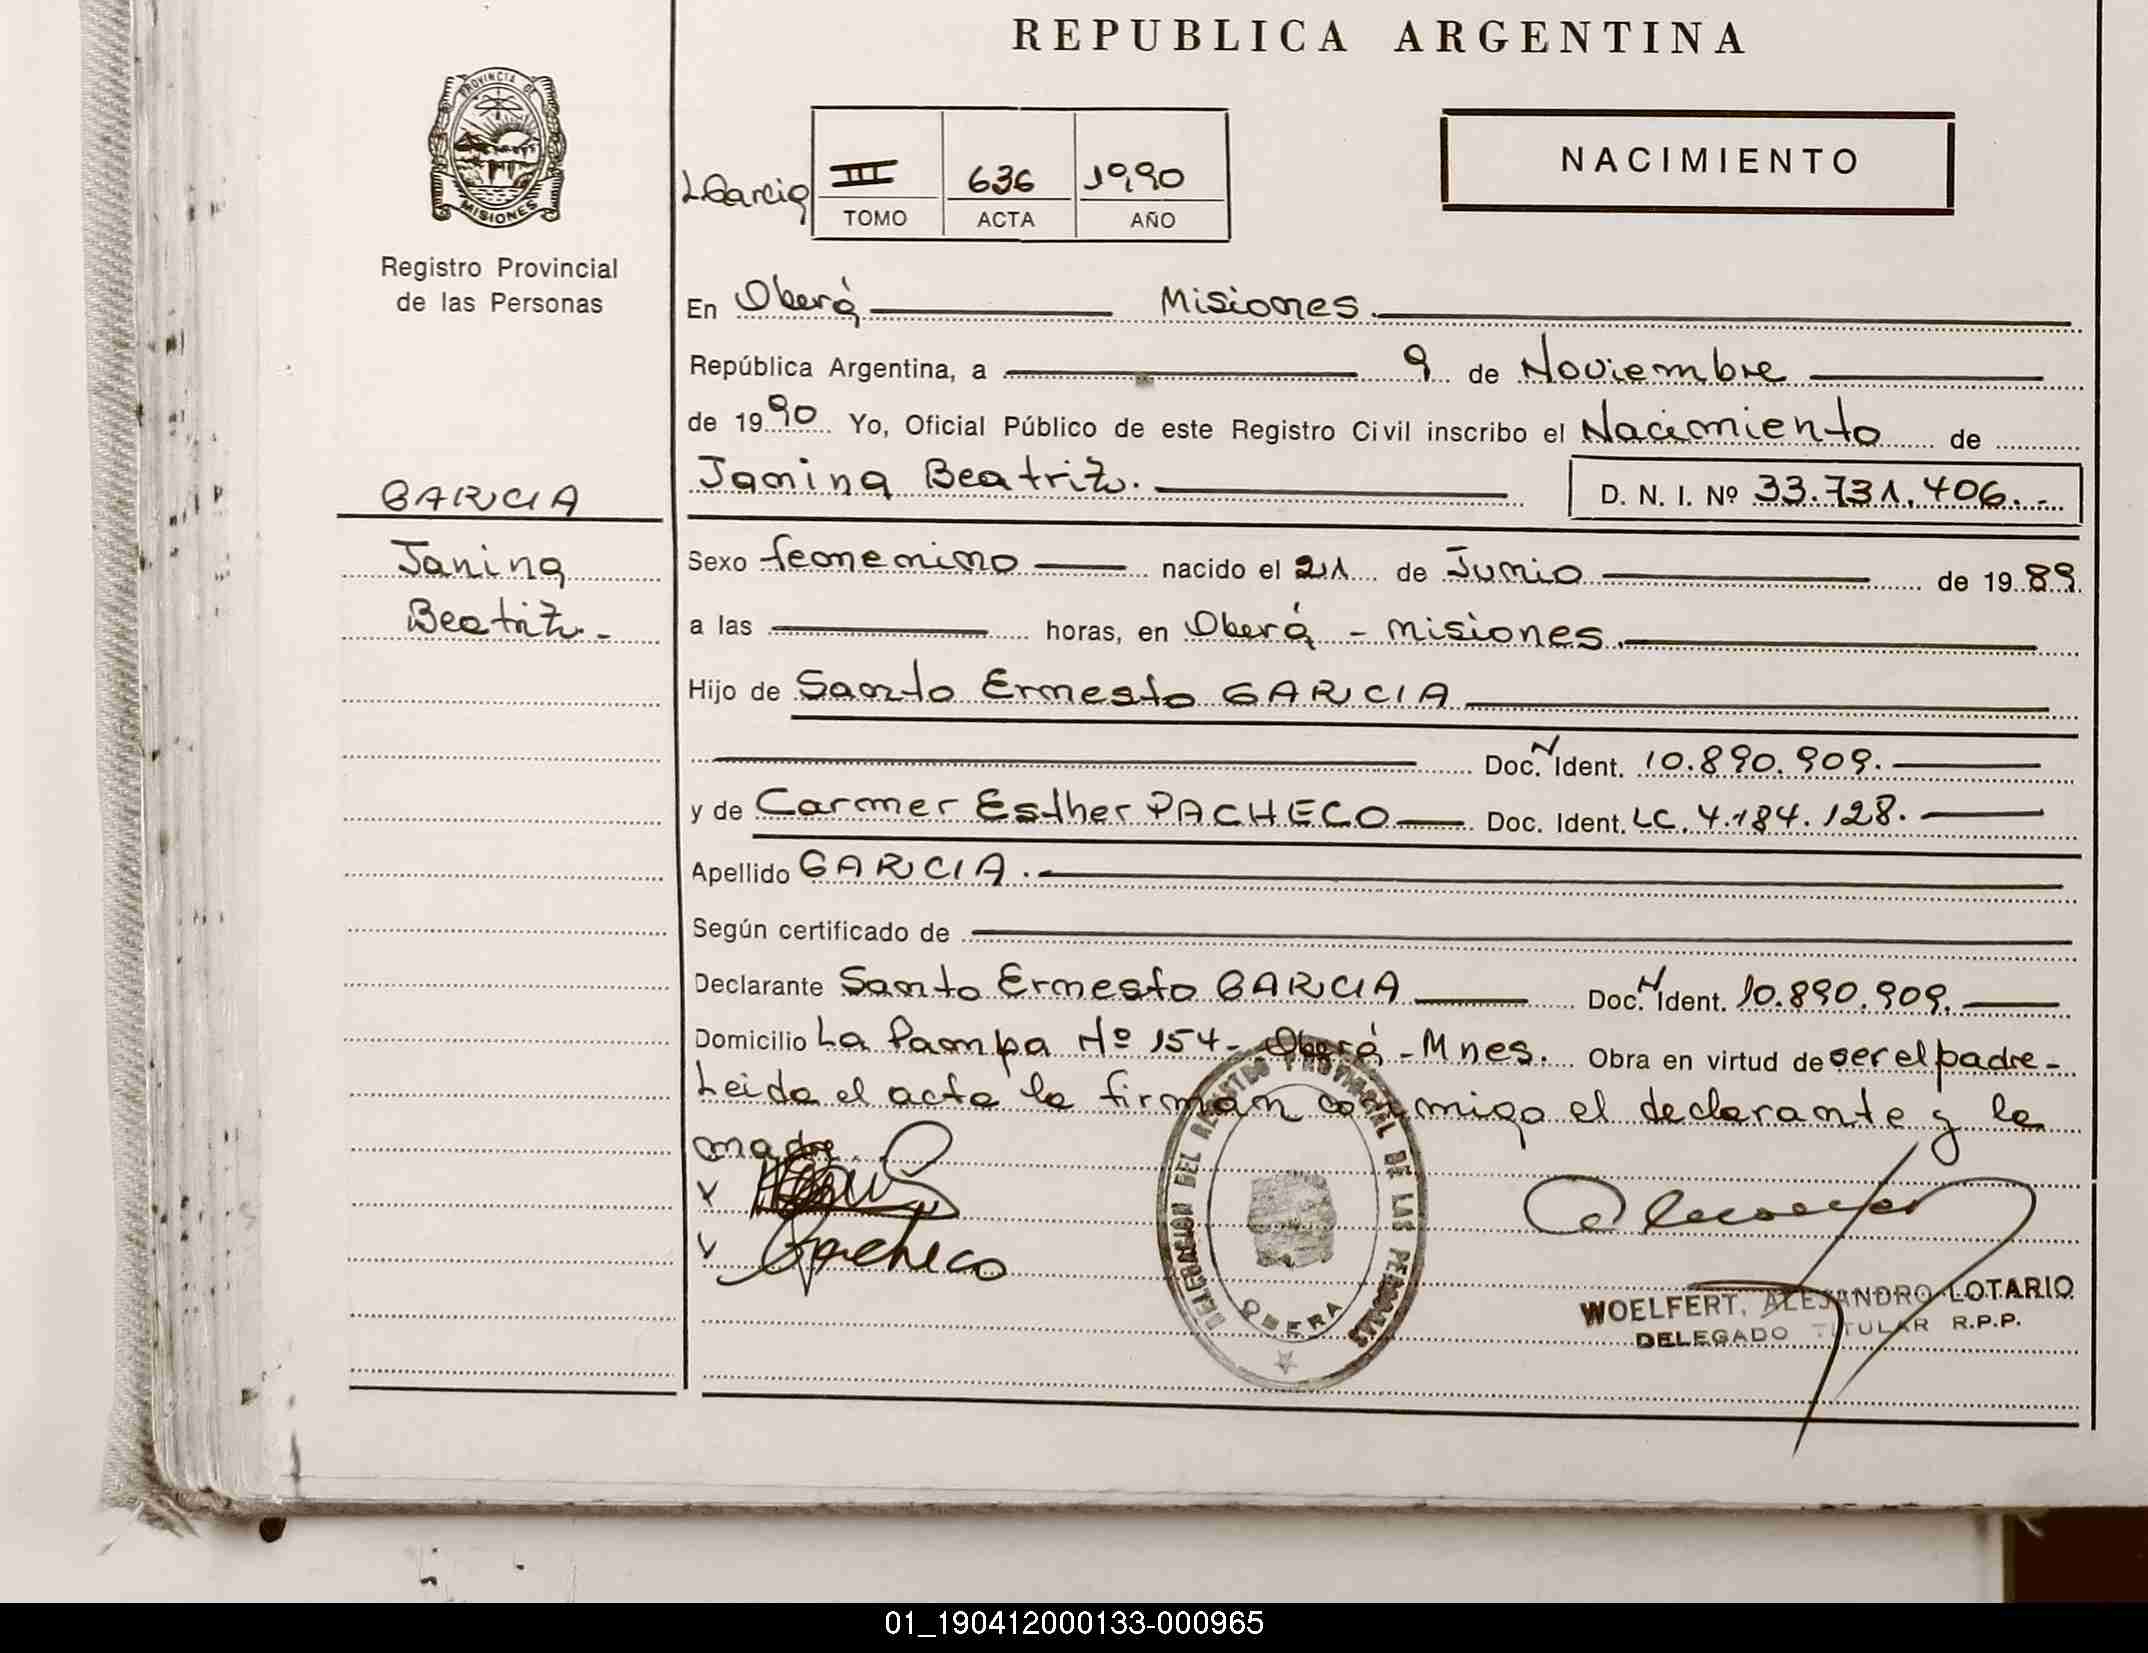 REPUBLICA ARGENTINA
PROVINCIA DE
MISIONES
Registro Provincial
de las Personas
III 636 1990
TOMO ACTA AÑO
NACIMIENTO
En Oberá Misiones.
República Argentina, a 9 de Noviembre
de 1990 Yo, Oficial Público de este Registro Civil inscribo el Nacimiento de
Janina Beatriz. D. N. I. Nº 33.731.406.-
GARCIA
Janina
Beatriz.-
Sexo femenino nacido el 21 de Junio de 1989.
a las horas, en Oberá - Misiones.
Hijo de Santo Ernesto GARCIA
Doc. N Ident. 10.890.909.
y de Carmen Esther PACHECO Doc. Ident. LC. 4.184.128.
Apellido GARCIA.
Según certificado de
Declarante Santo Ernesto GARCIA Doc. N Ident. 10.890.909.
Domicilio La Pampa Nº 154- Oberá - Mnes. Obra en virtud de ser el padre-
Leida el acta la firman conmigo el declarante y la
madre.
Pacheco
DELEGACION DEL REGISTRO PROVINCIAL DE LAS PERSONAS
OBERA
WOELFERT, ALEJANDRO LOTARIO
DELEGADO TITULAR R.P.P.
01_190412000133-000965